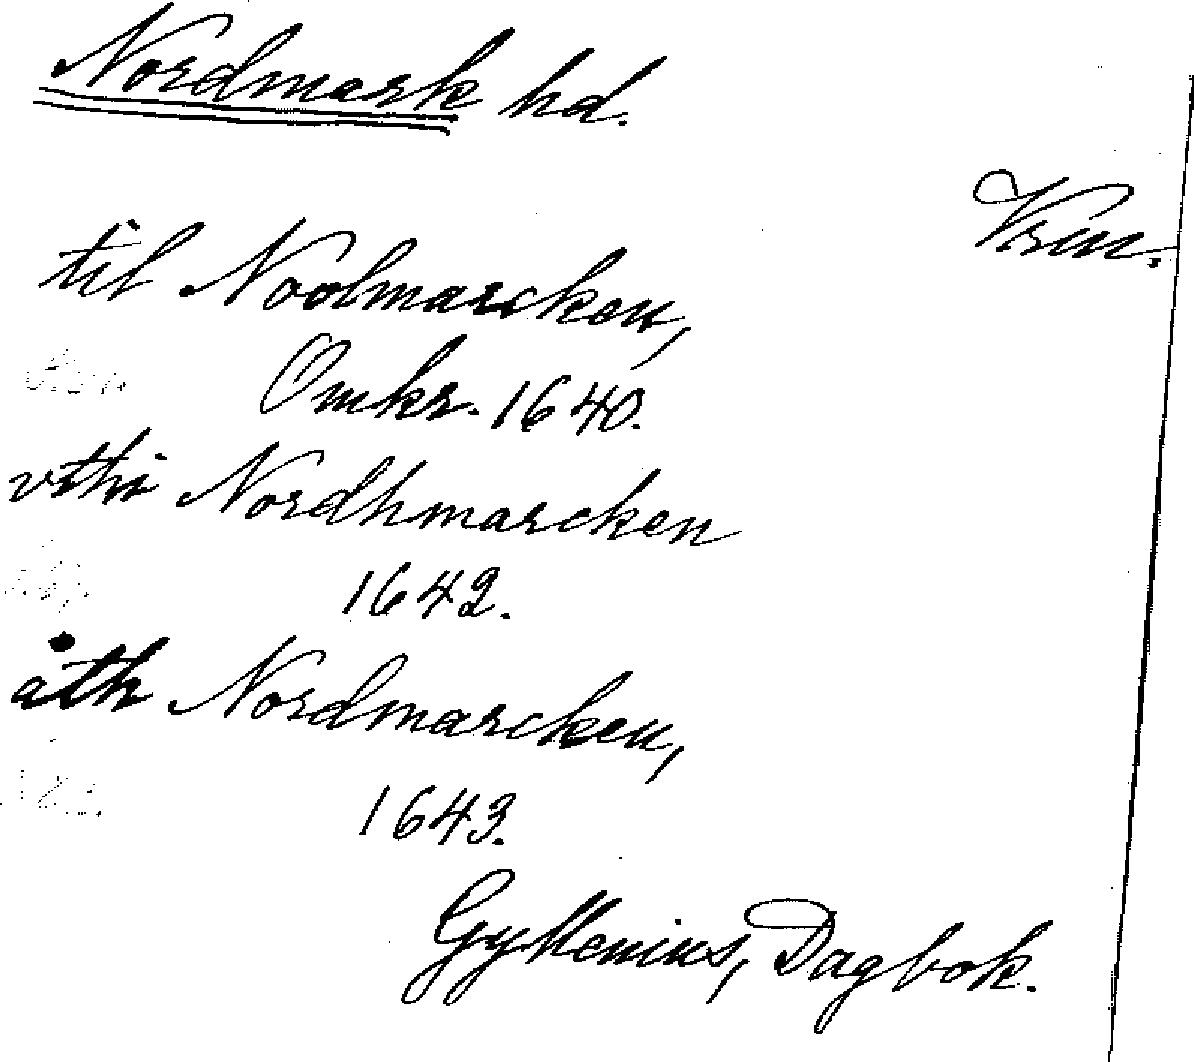 Nordmark hd.
Vrm.
til Noolmarcken,
Omkr. 1640.
vthi Nordhmarcken
1642.
åth Nordmarcken,
1643.
Gyllenius, Dagbok.